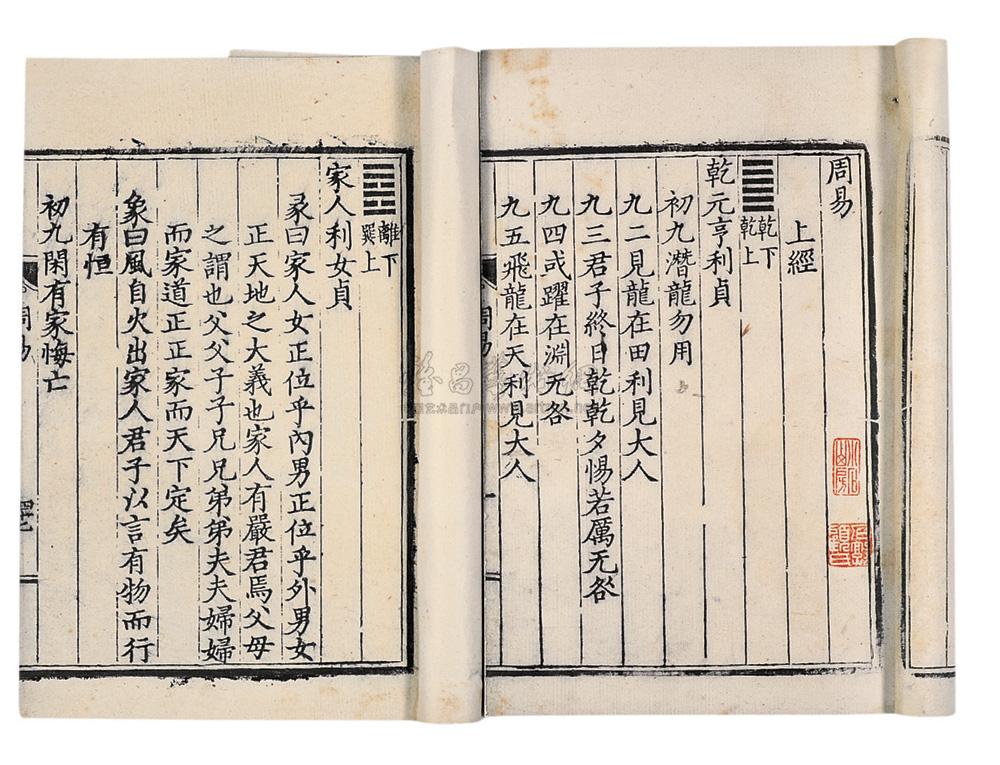 周易
上經
乾下
乾上
乾元亨利貞
初九潛龍勿用
九二見龍在田利見大人
九三君子終日乾乾夕惕若厲无咎
九四或躍在淵无咎
九五飛龍在天利見大人
離下
巽上
家人利女貞
彖曰家人女正位乎內男正位乎外男女
正天地之大義也家人有嚴君焉父母
之謂也父父子子兄兄弟弟夫夫婦婦
而家道正正家而天下定矣
象曰風自火出家人君子以言有物而行
有恒
初九閑有家悔亡
周易